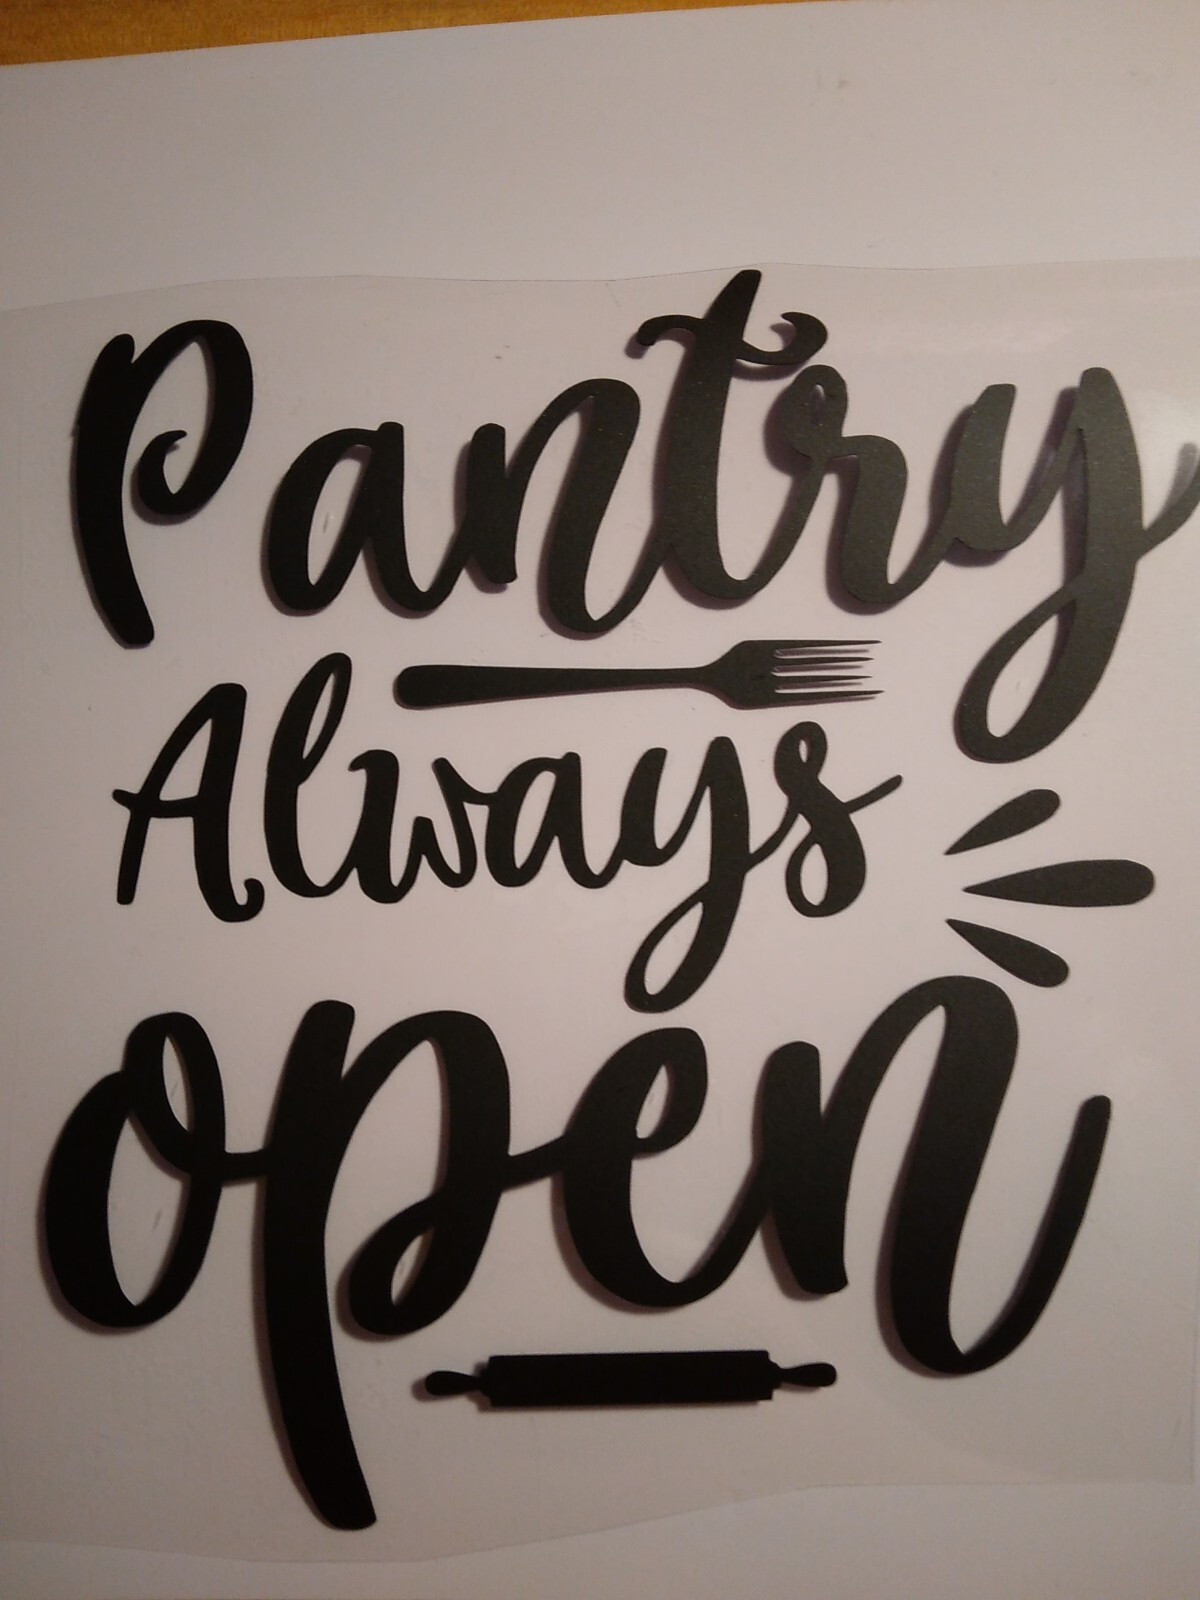 Pantry
Always
open